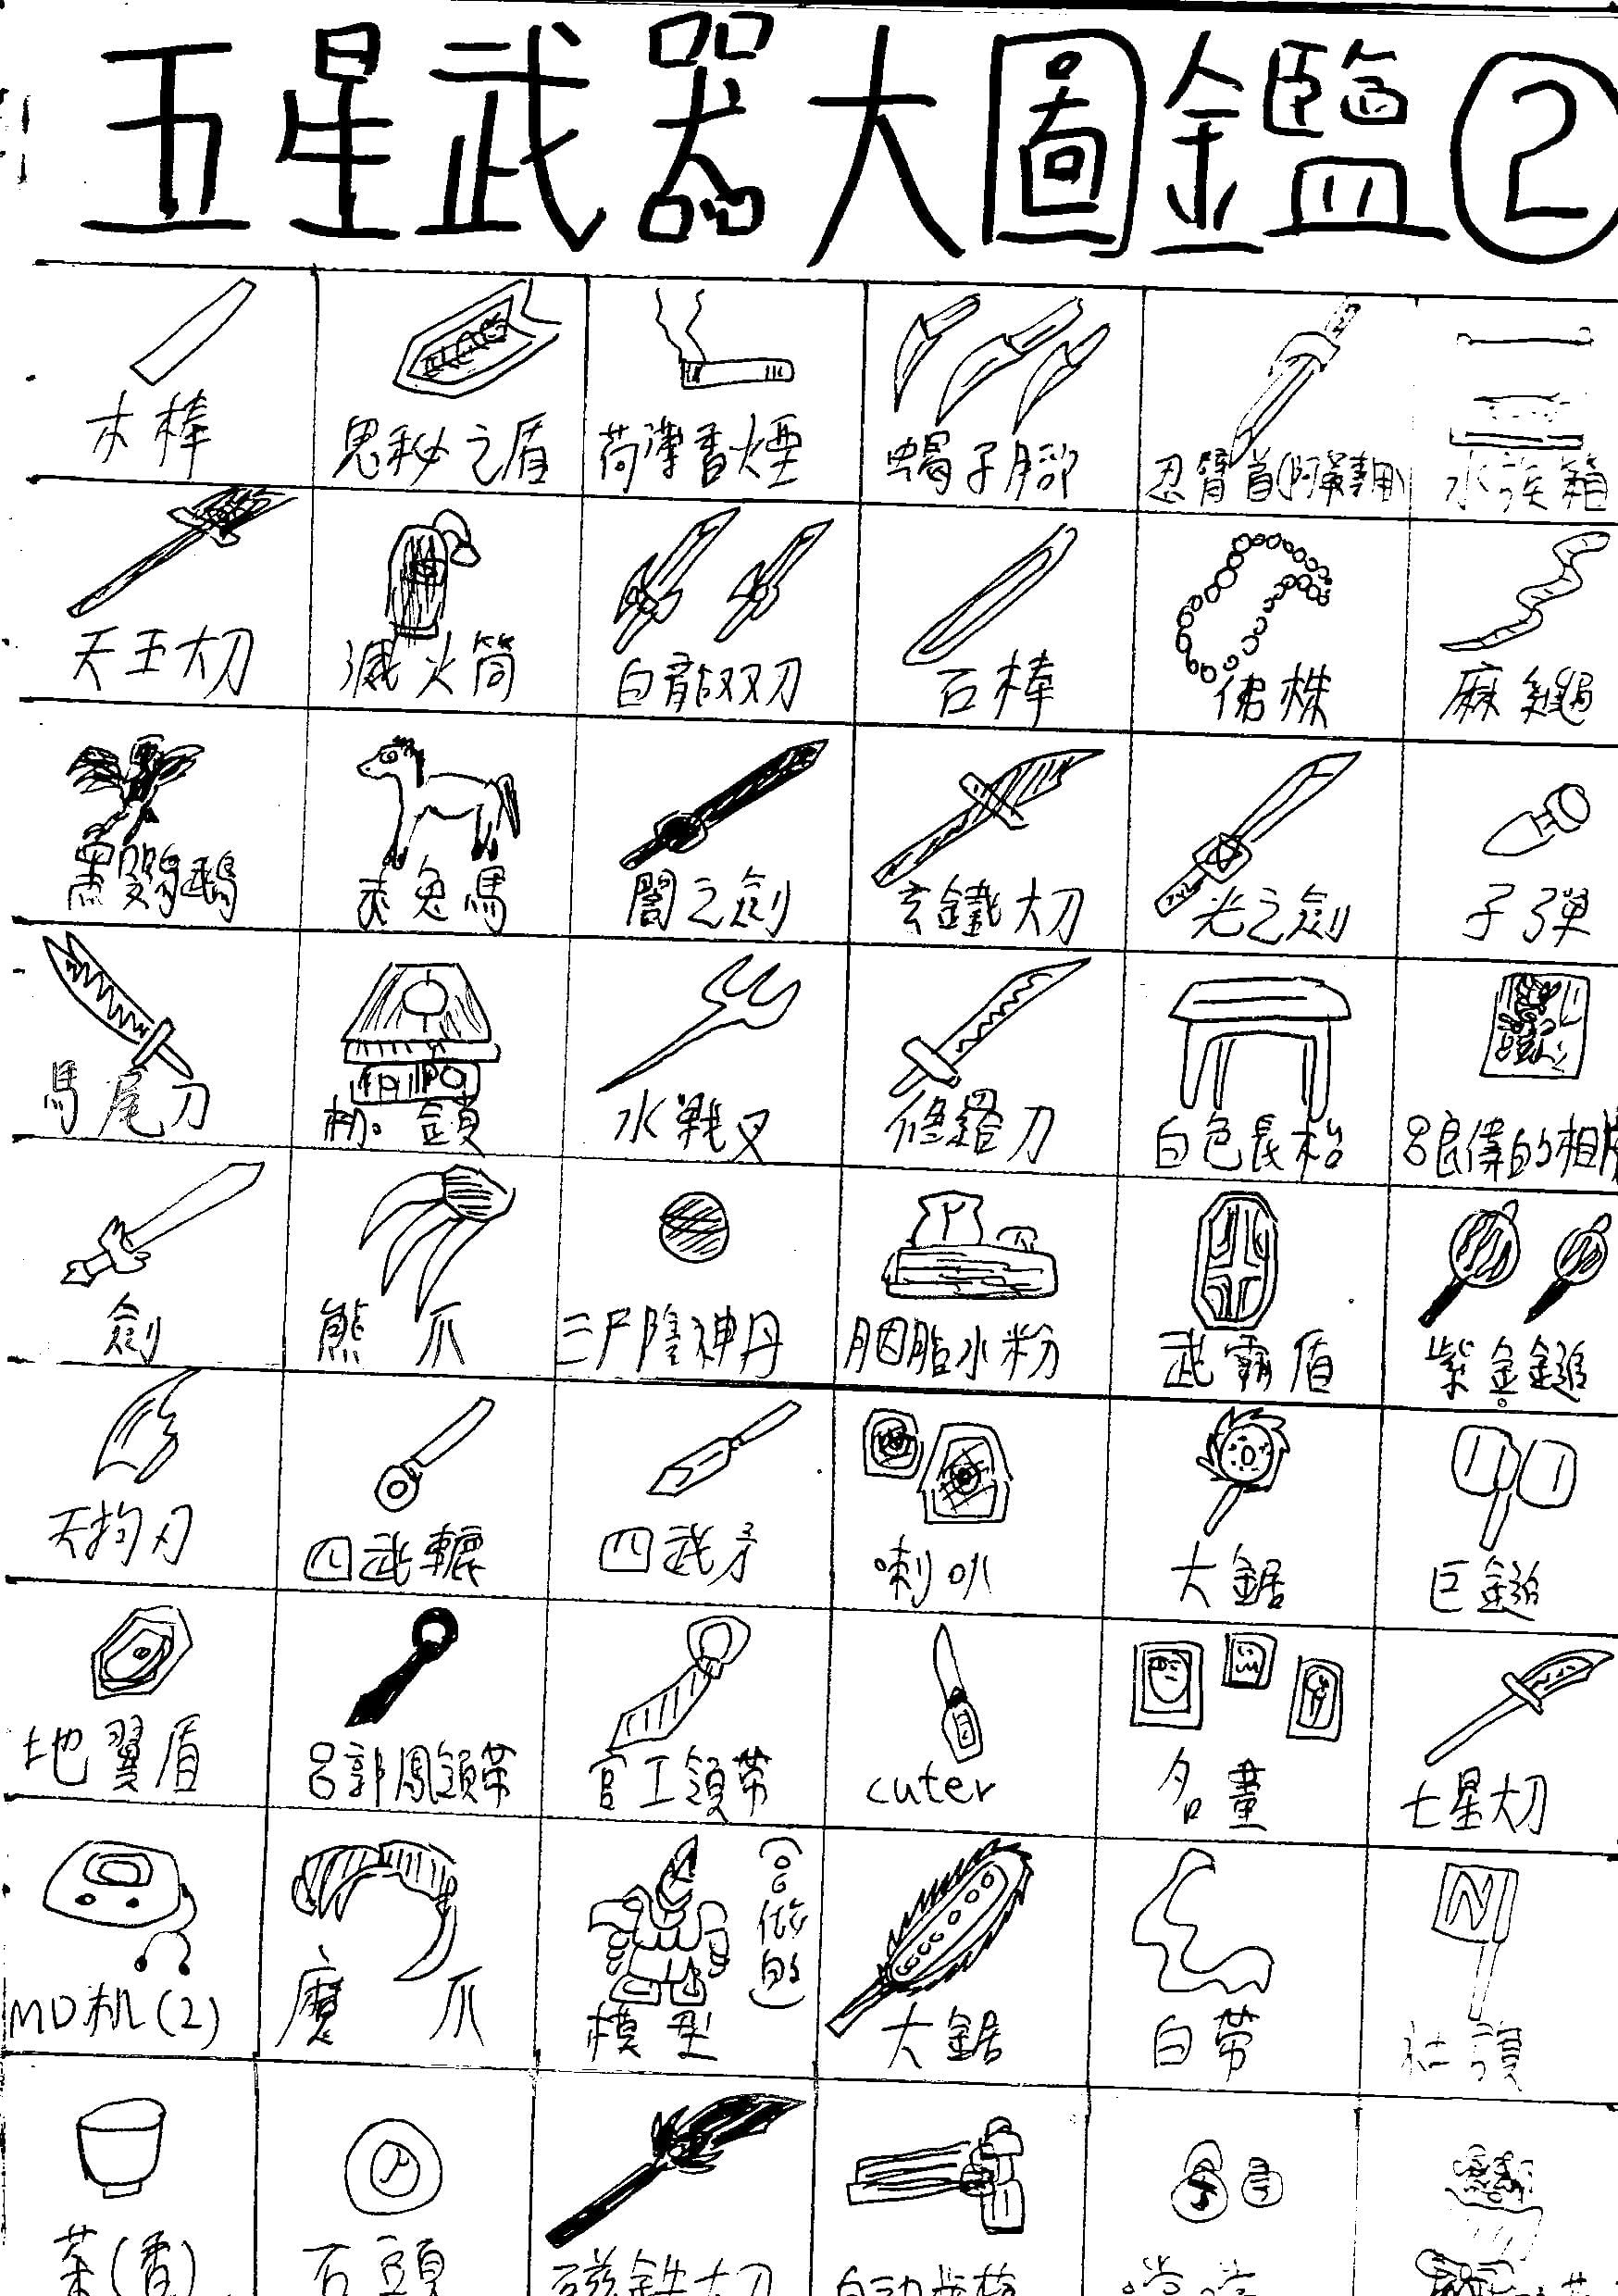 五星武器大圖鑑②
木棒 思秘之盾 荷薄香煙 蝎子腳 水族箱
天王大刀 滅火筒 白龍双刀 石棒 佛株 麻繩
黑鸚鵡 赤兔馬 闇之劍 玄鐵大刀 光之劍 子彈
馬尾刀 水戰叉 修羅刀 白色長枱 呂良偉的相
劍 熊爪 三尸陰神丹 胭脂水粉 武霸盾 紫金鎚
天狗刃 四武轆 四武矛 喇叭 大鋸 巨鎚
地翼盾 呂郭鳳領帶 官工領帶 cuter 名畫 七星大刀
MD机(2) 魔爪 模型 大鋸 白帶
茶(香) 石頭 磁鉄大刀